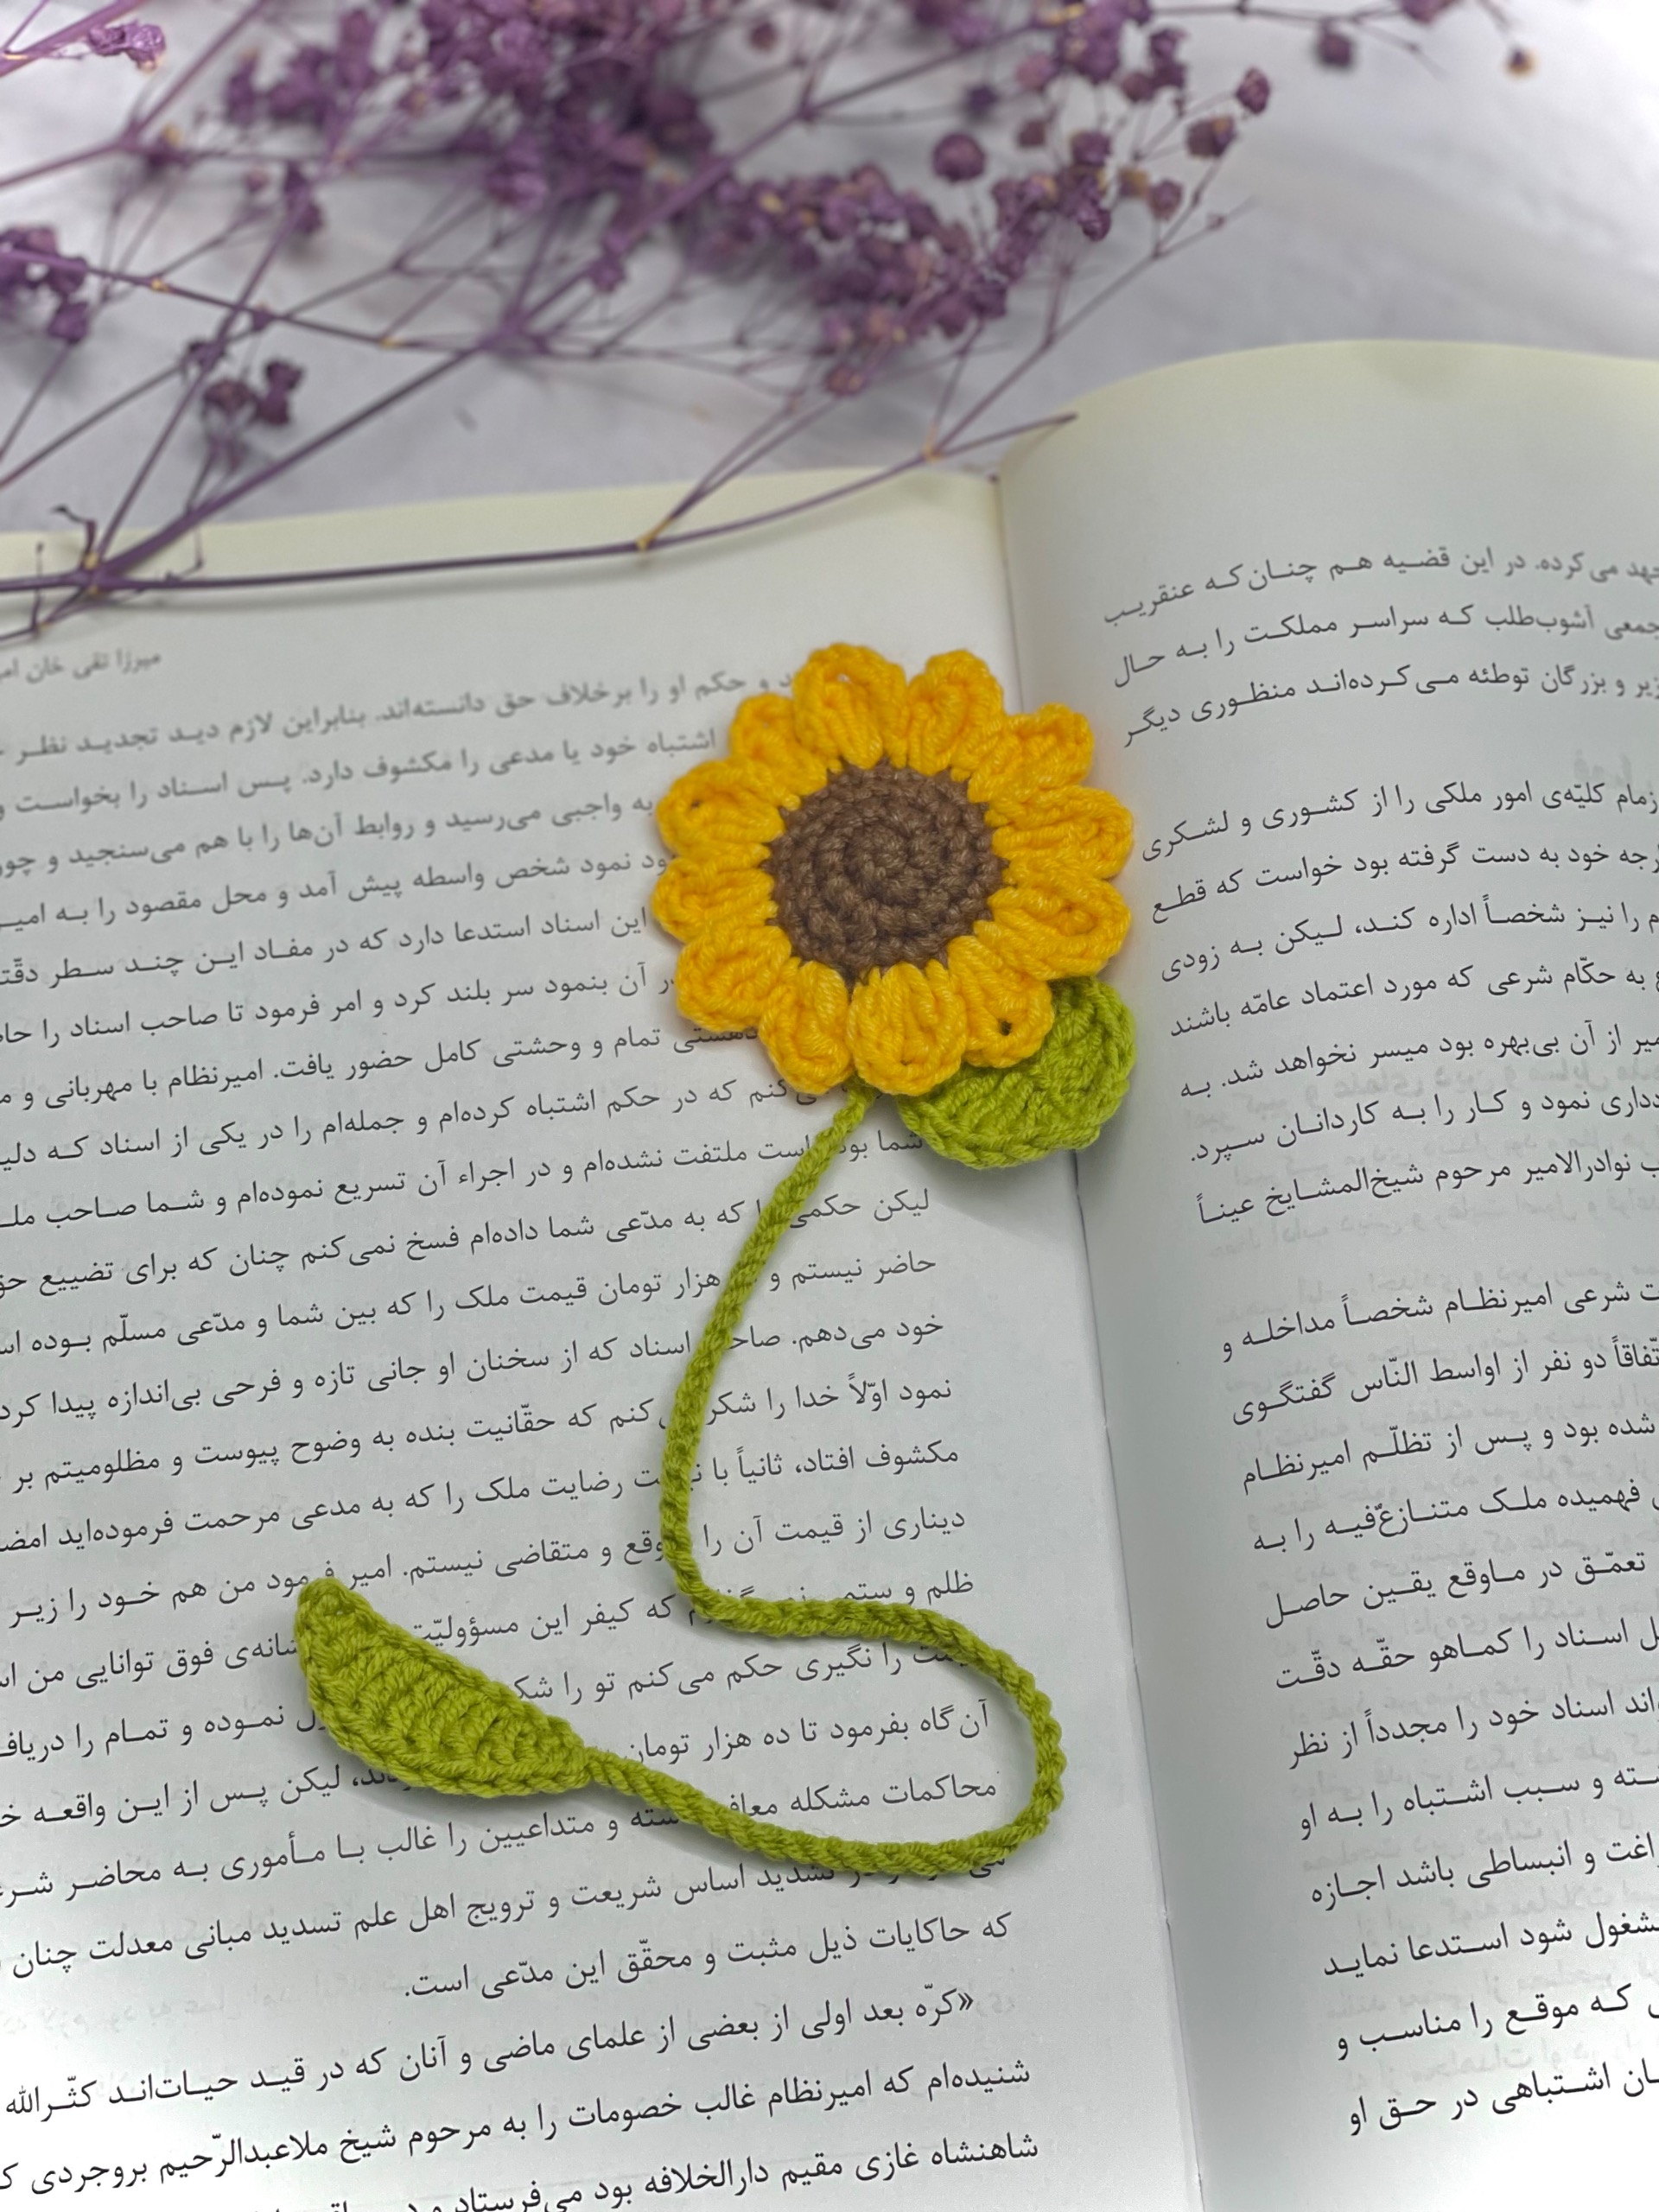 جهد می‌کرده. در این قضیه هم چنان‌که عنقریب
جمعی آشوب‌طلب که سراسر مملکت را به حال
و بزرگان توطئه می‌کرده‌اند منظوری دیگر
زمام کلیّه‌ی امور ملکی را از کشوری و لشکری
خود به دست گرفته بود خواست که قطع
را نیز شخصاً اداره کند، لیکن به زودی
به حکّام شرعی که مورد اعتماد عامّه باشند
از آن بی‌بهره بود میسر نخواهد شد. به
نمود و کار را به کاردانان سپرد.
نوادرالامیر مرحوم شیخ‌المشایخ عیناً
شرعی امیرنظام شخصاً مداخله و
دو نفر از اواسط النّاس گفتگوی
شده بود و پس از تظلّم امیرنظام
فهمیده ملک متنازعٌ‌فیه را به
تعمّق در ماوقع یقین حاصل
اسناد را کماهو حقّه دقّت
اسناد خود را مجدداً از نظر
و سبب اشتباه را به او
و انبساطی باشد اجازه
شود استدعا نماید
که موقع را مناسب و
اشتباهی در حق او
میرزا تقی خان
و حکم او را برخلاف حق دانسته‌اند. بنابراین لازم دید تجدید نظر
اشتباه خود یا مدعی را مکشوف دارد. پس اسناد را بخواست و
به واجبی می‌رسید و روابط آن‌ها را با هم می‌سنجید و
نمود شخص واسطه پیش آمد و محل مقصود را به
این اسناد استدعا دارد که در مفاد این چند سطر
آن بنمود سر بلند کرد و امر فرمود تا صاحب اسناد را
تمام و وحشتی کامل حضور یافت. امیرنظام با مهربانی و
که در حکم اشتباه کرده‌ام و جمله‌ام را در یکی از اسناد که
شما است ملتفت نشده‌ام و در اجراء آن تسریع نموده‌ام و شما صاحب
لیکن حکمی را که به مدّعی شما داده‌ام فسخ نمی‌کنم چنان که برای تضییع
حاضر نیستم و هزار تومان قیمت ملک را که بین شما و مدّعی مسلّم بوده
خود می‌دهم. صاحب اسناد که از سخنان او جانی تازه و فرحی بی‌اندازه پیدا
نمود اوّلاً خدا را شکر می‌کنم که حقّانیت بنده به وضوح پیوست و مظلومیتم بر
مکشوف افتاد، ثانیاً با رضایت ملک را که به مدعی مرحمت فرموده‌اید
دیناری از قیمت آن را و متقاضی نیستم. امیر فرمود من هم خود را زیر
ظلم و که کیفر این فوق توانایی من
را نگیری حکم می‌کنم تو را نموده و تمام را
آن‌گاه بفرمود تا ده هزار تومان لیکن پس از این واقعه
محاکمات مشکله و متداعیین را غالب با مأموری به محاضر
اساس شریعت و ترویج اهل علم تسدید مبانی معدلت چنان
که حاکایات ذیل مثبت و محقّق این مدّعی است.
«کرّه بعد اولی از بعضی از علمای ماضی و آنان که در قید حیات‌اند کثّرالله
شنیده‌ام که امیرنظام غالب خصومات را به مرحوم شیخ ملاعبدالرّحیم بروجردی
شاهنشاه غازی مقیم دارالخلافه بود می‌فرستاد و